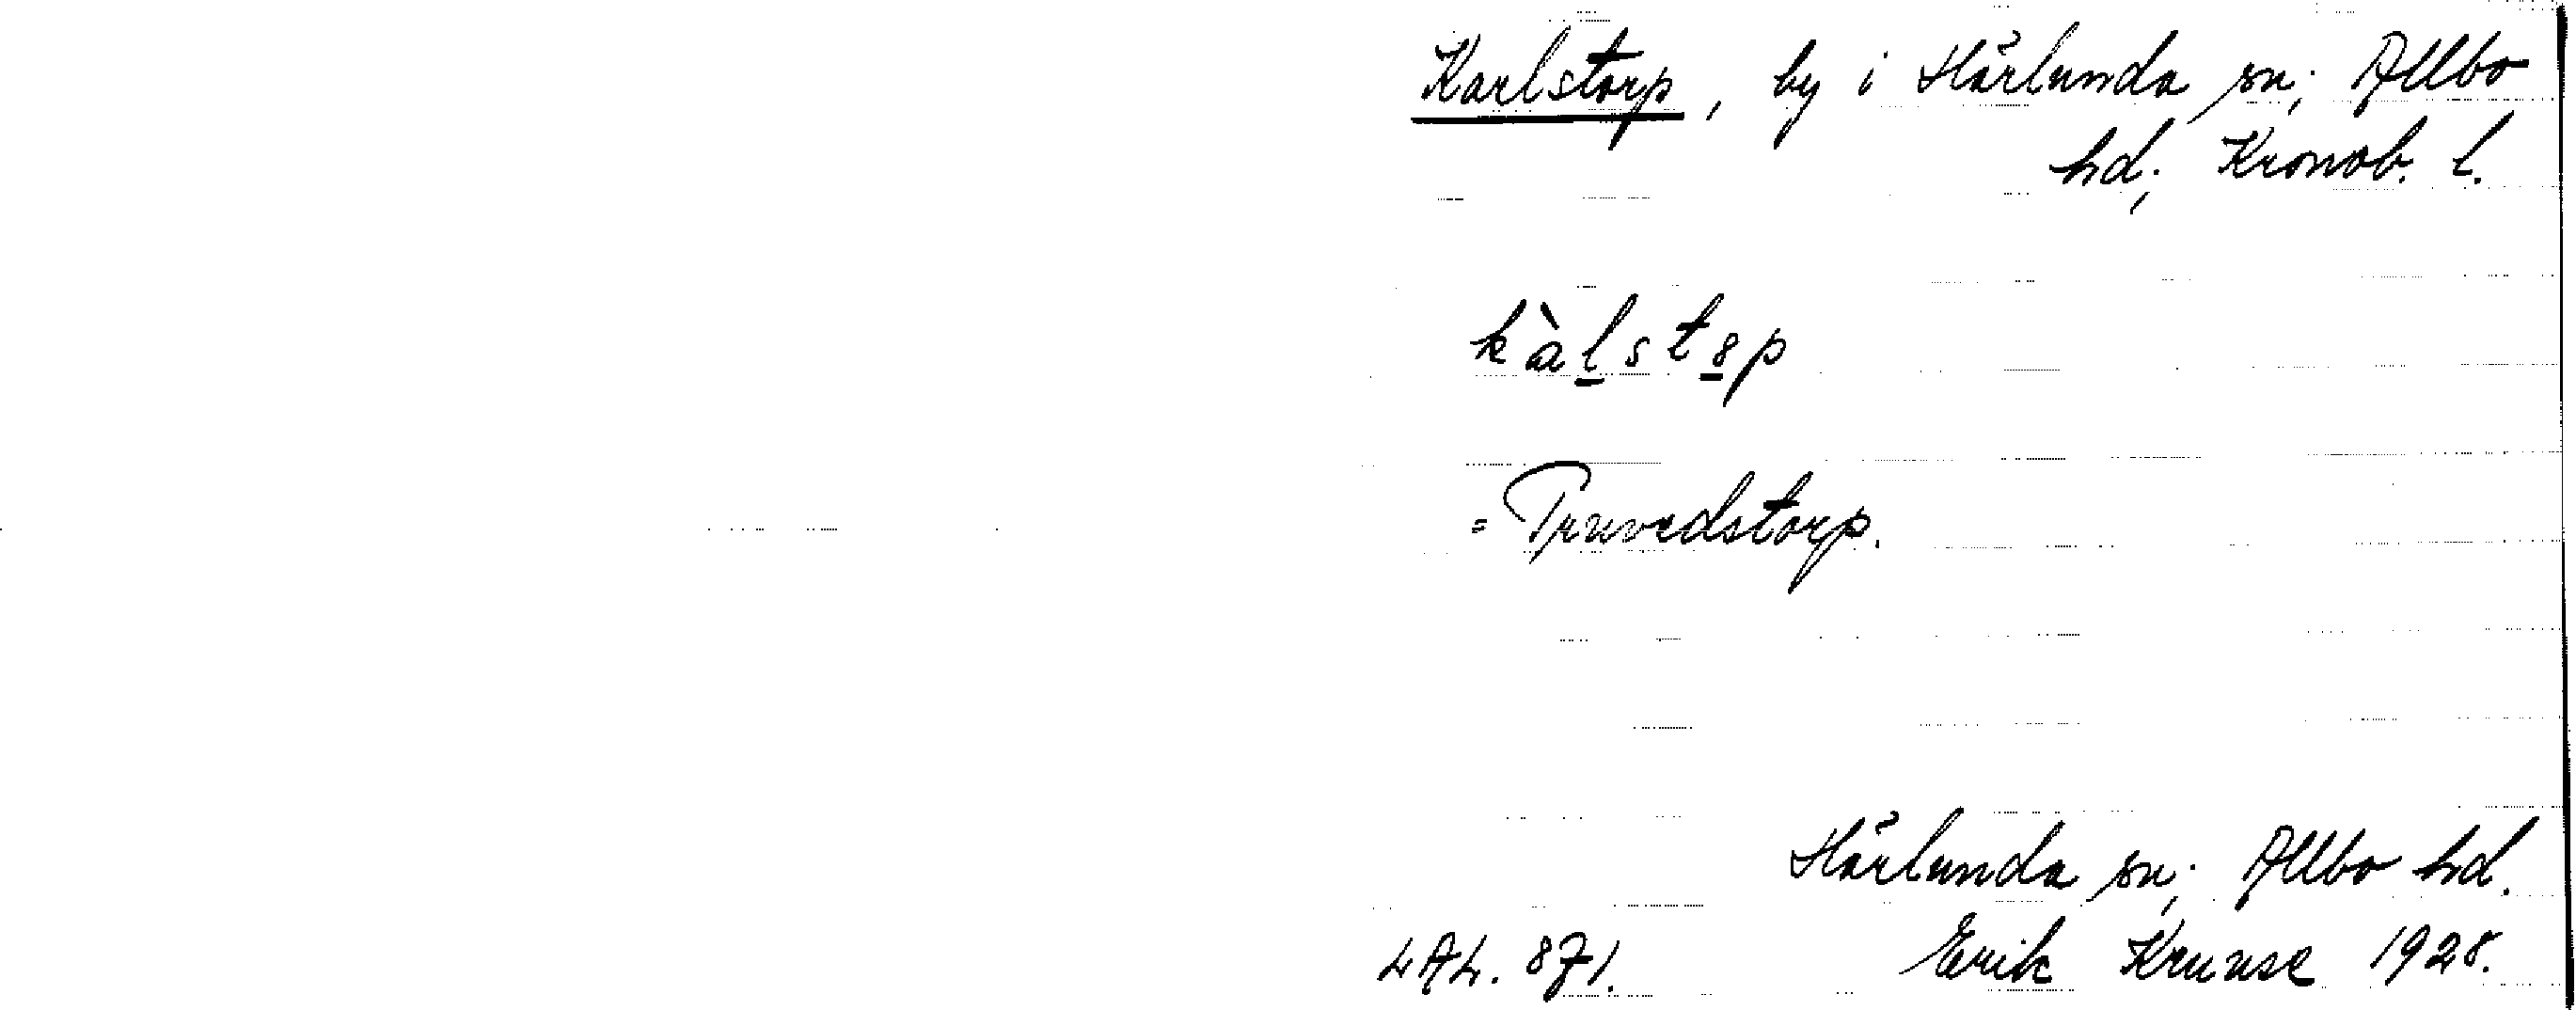 Karlstorp, by i Härlunda sn; Allbo
hd; Kronob. l.
kàlst8p
= Truvedstorp.
Härlunda sn; Allbo hd.
LAL. 871. Erik Kruuse 1928.